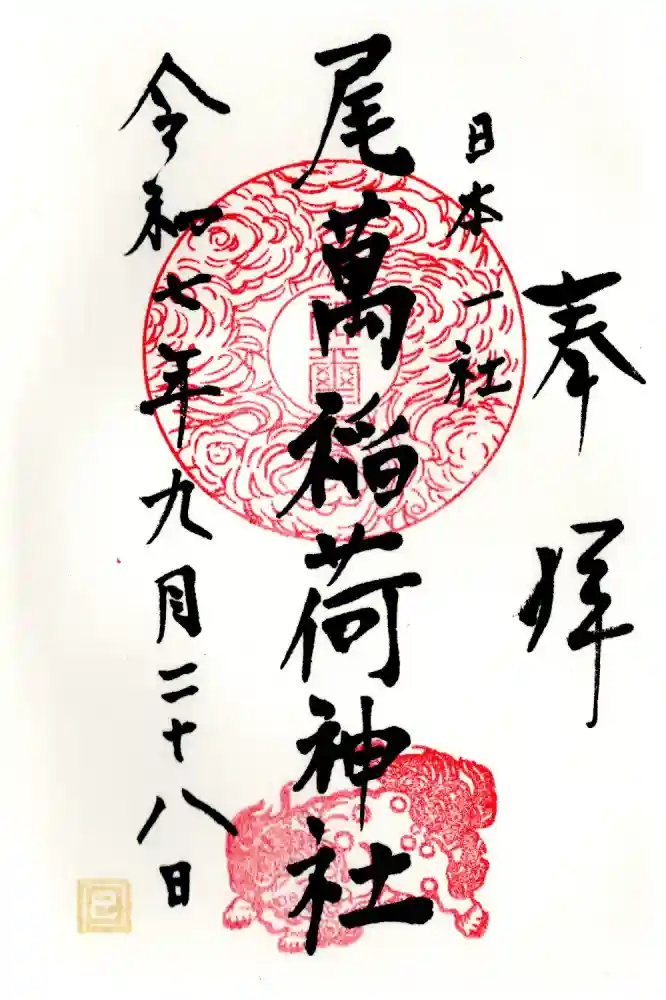 奉拝
日本一社
尾萬稲荷神社
令和七年九月二十八日
巳